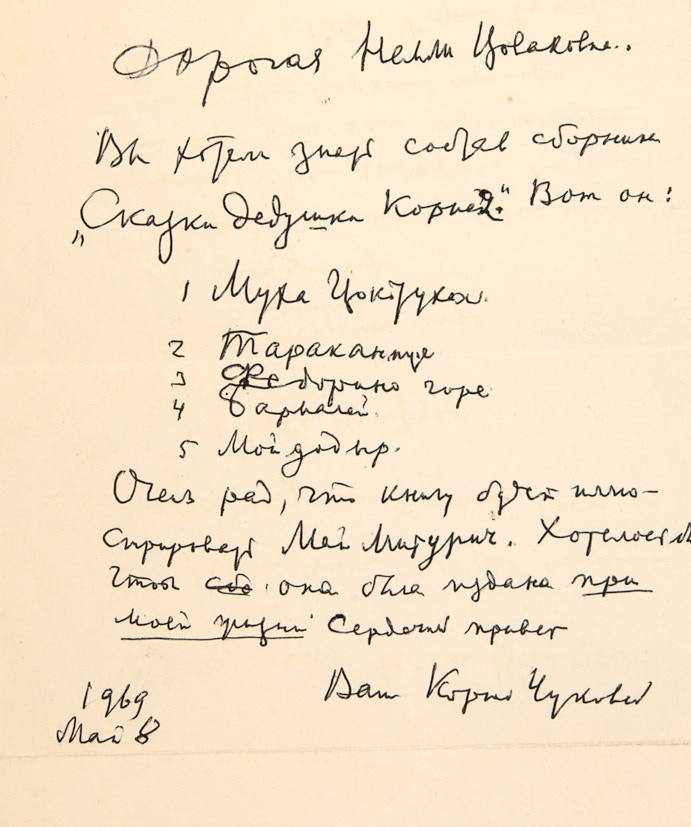 Дорогая Нелли Цолаковна..
Вы хотели знать состав сборника
„Сказки дедушки Корнея". Вот он:
1 Муха Цокотуха.
2 Тараканище
3 Федорино горе
4 Бармалей.
5 Мойдодыр.
Очень рад, что книгу будет иллю-
стрировать Май Митурич. Хотелось б
чтоб она была издана при
моей жизни Сердечный привет
Ваш Корней Чуковский
1969
Май 8